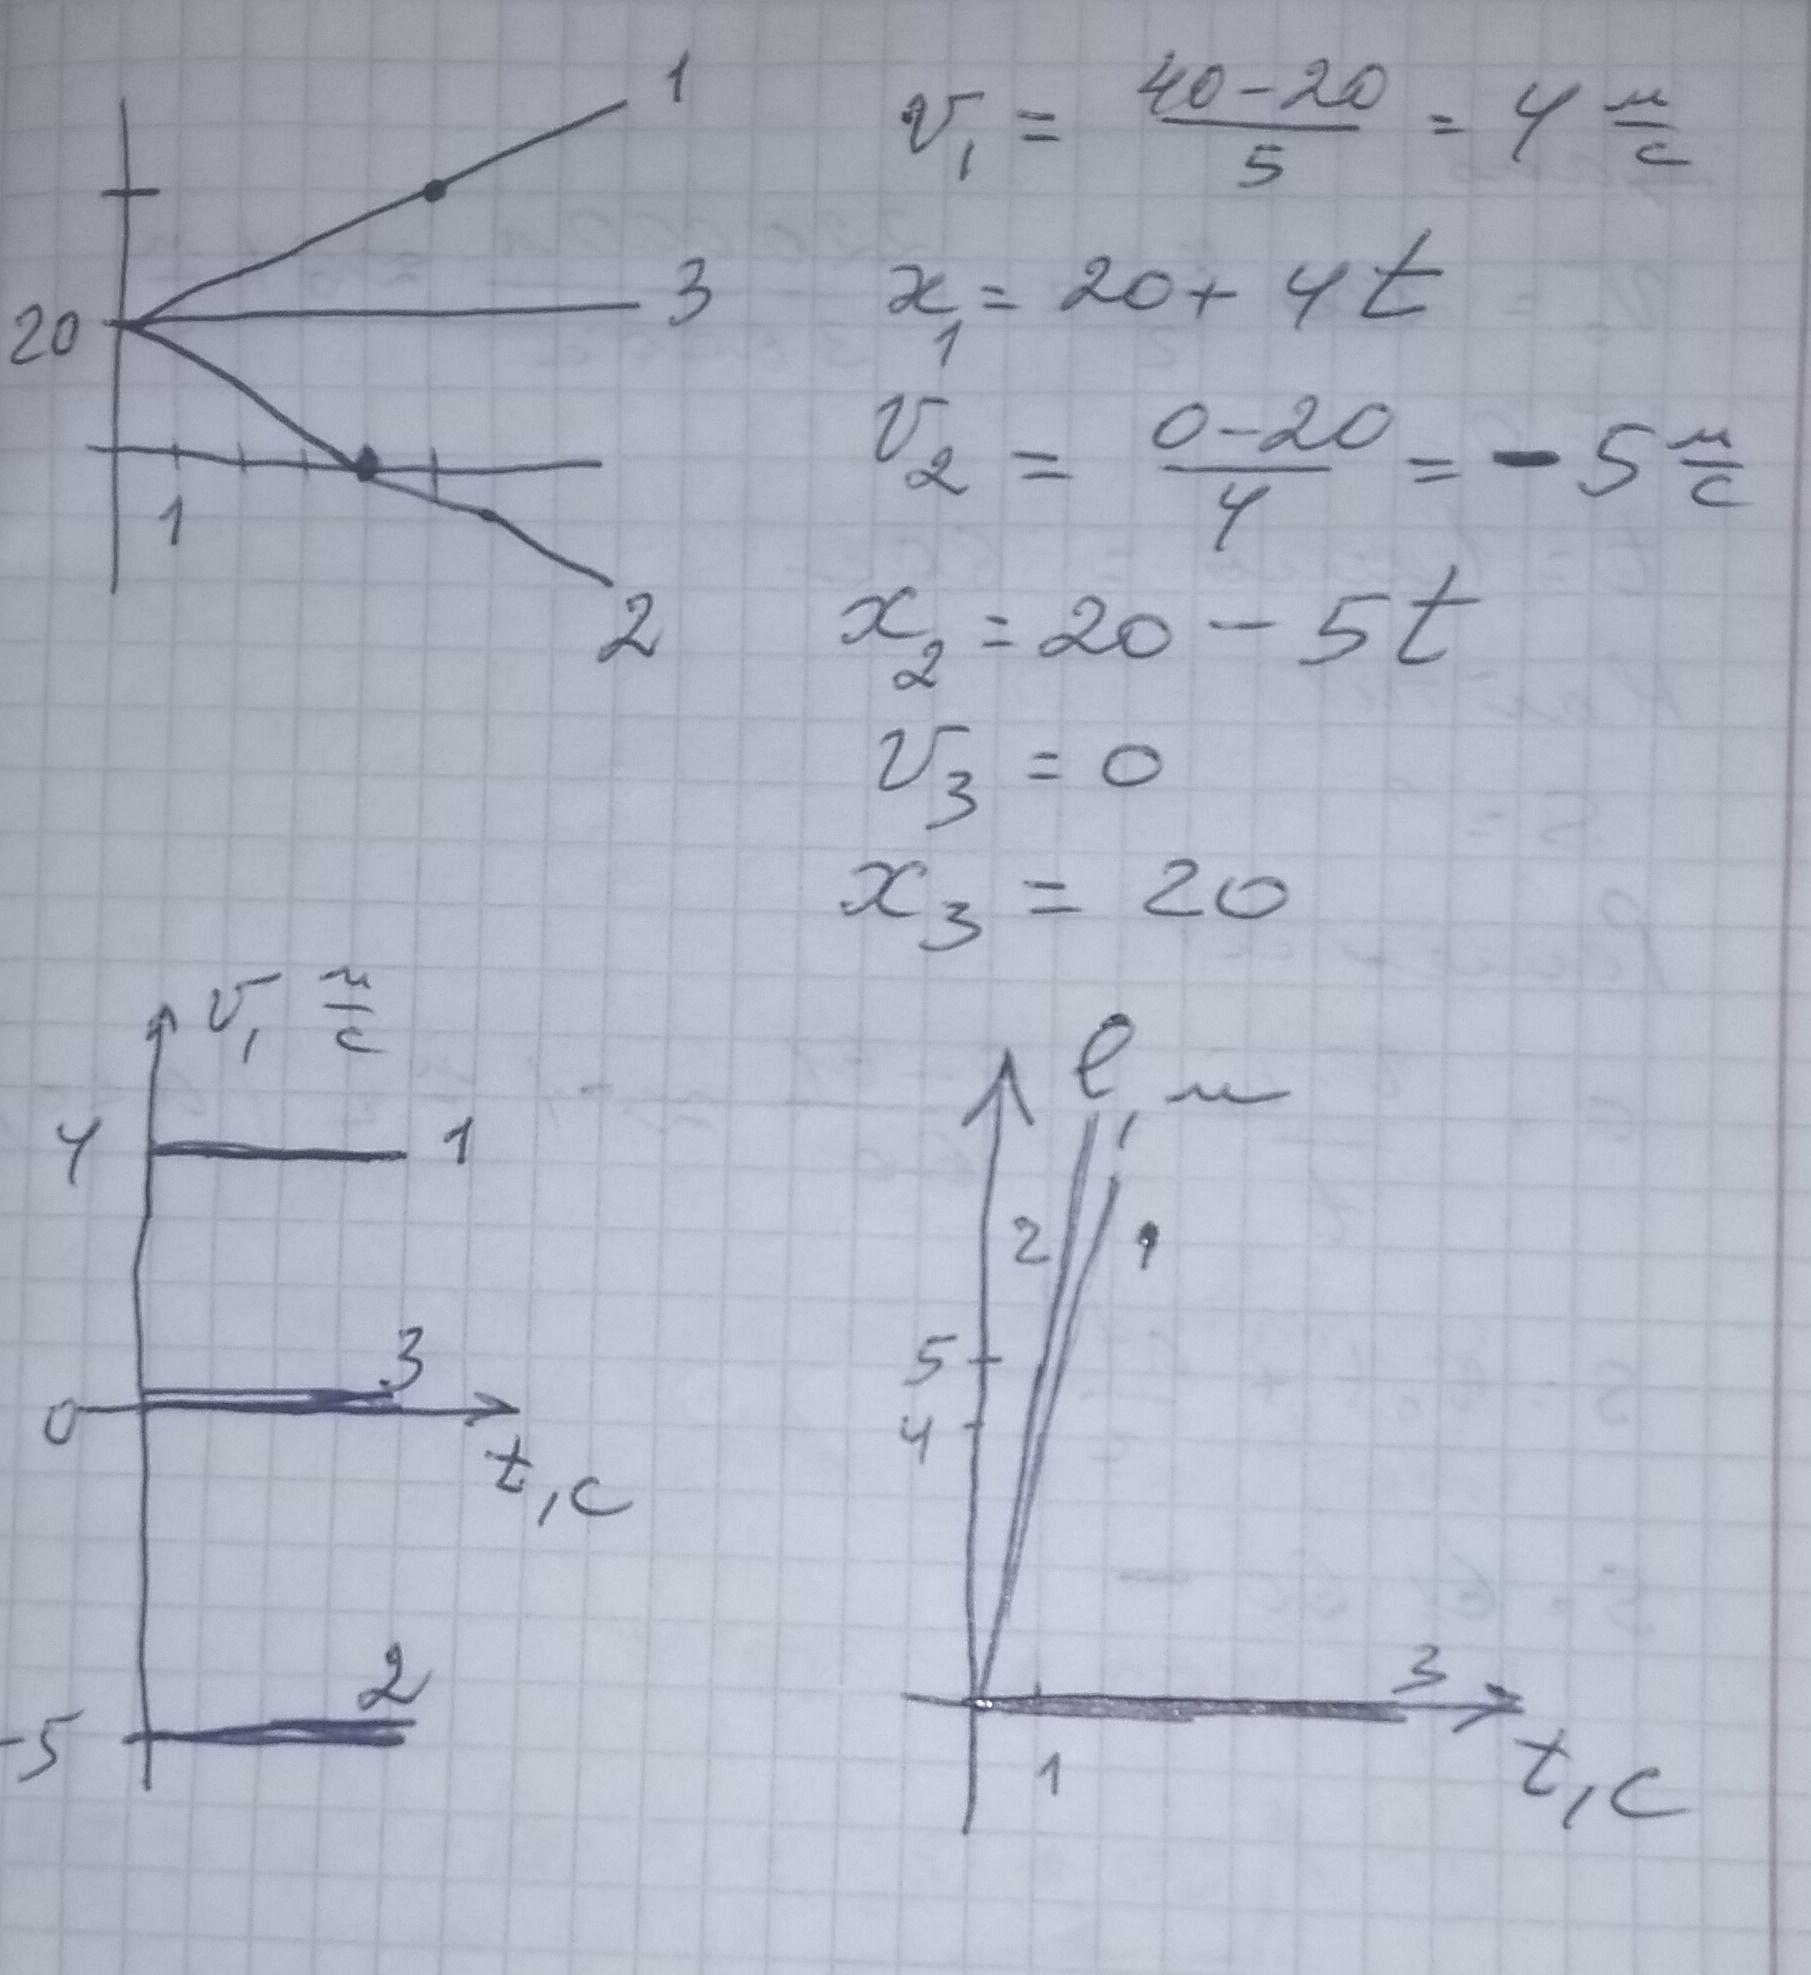 1
3
20
1
2
v₁ = (40-20)/5 = 4 м/с
x₁ = 20 + 4t
v₂ = (0-20)/4 = -5 м/с
x₂ = 20 - 5t
v₃ = 0
x₃ = 20
v, м/с
4
1
3
0
t, с
2
-5
l, м
2
1
5
4
3
1
t, с